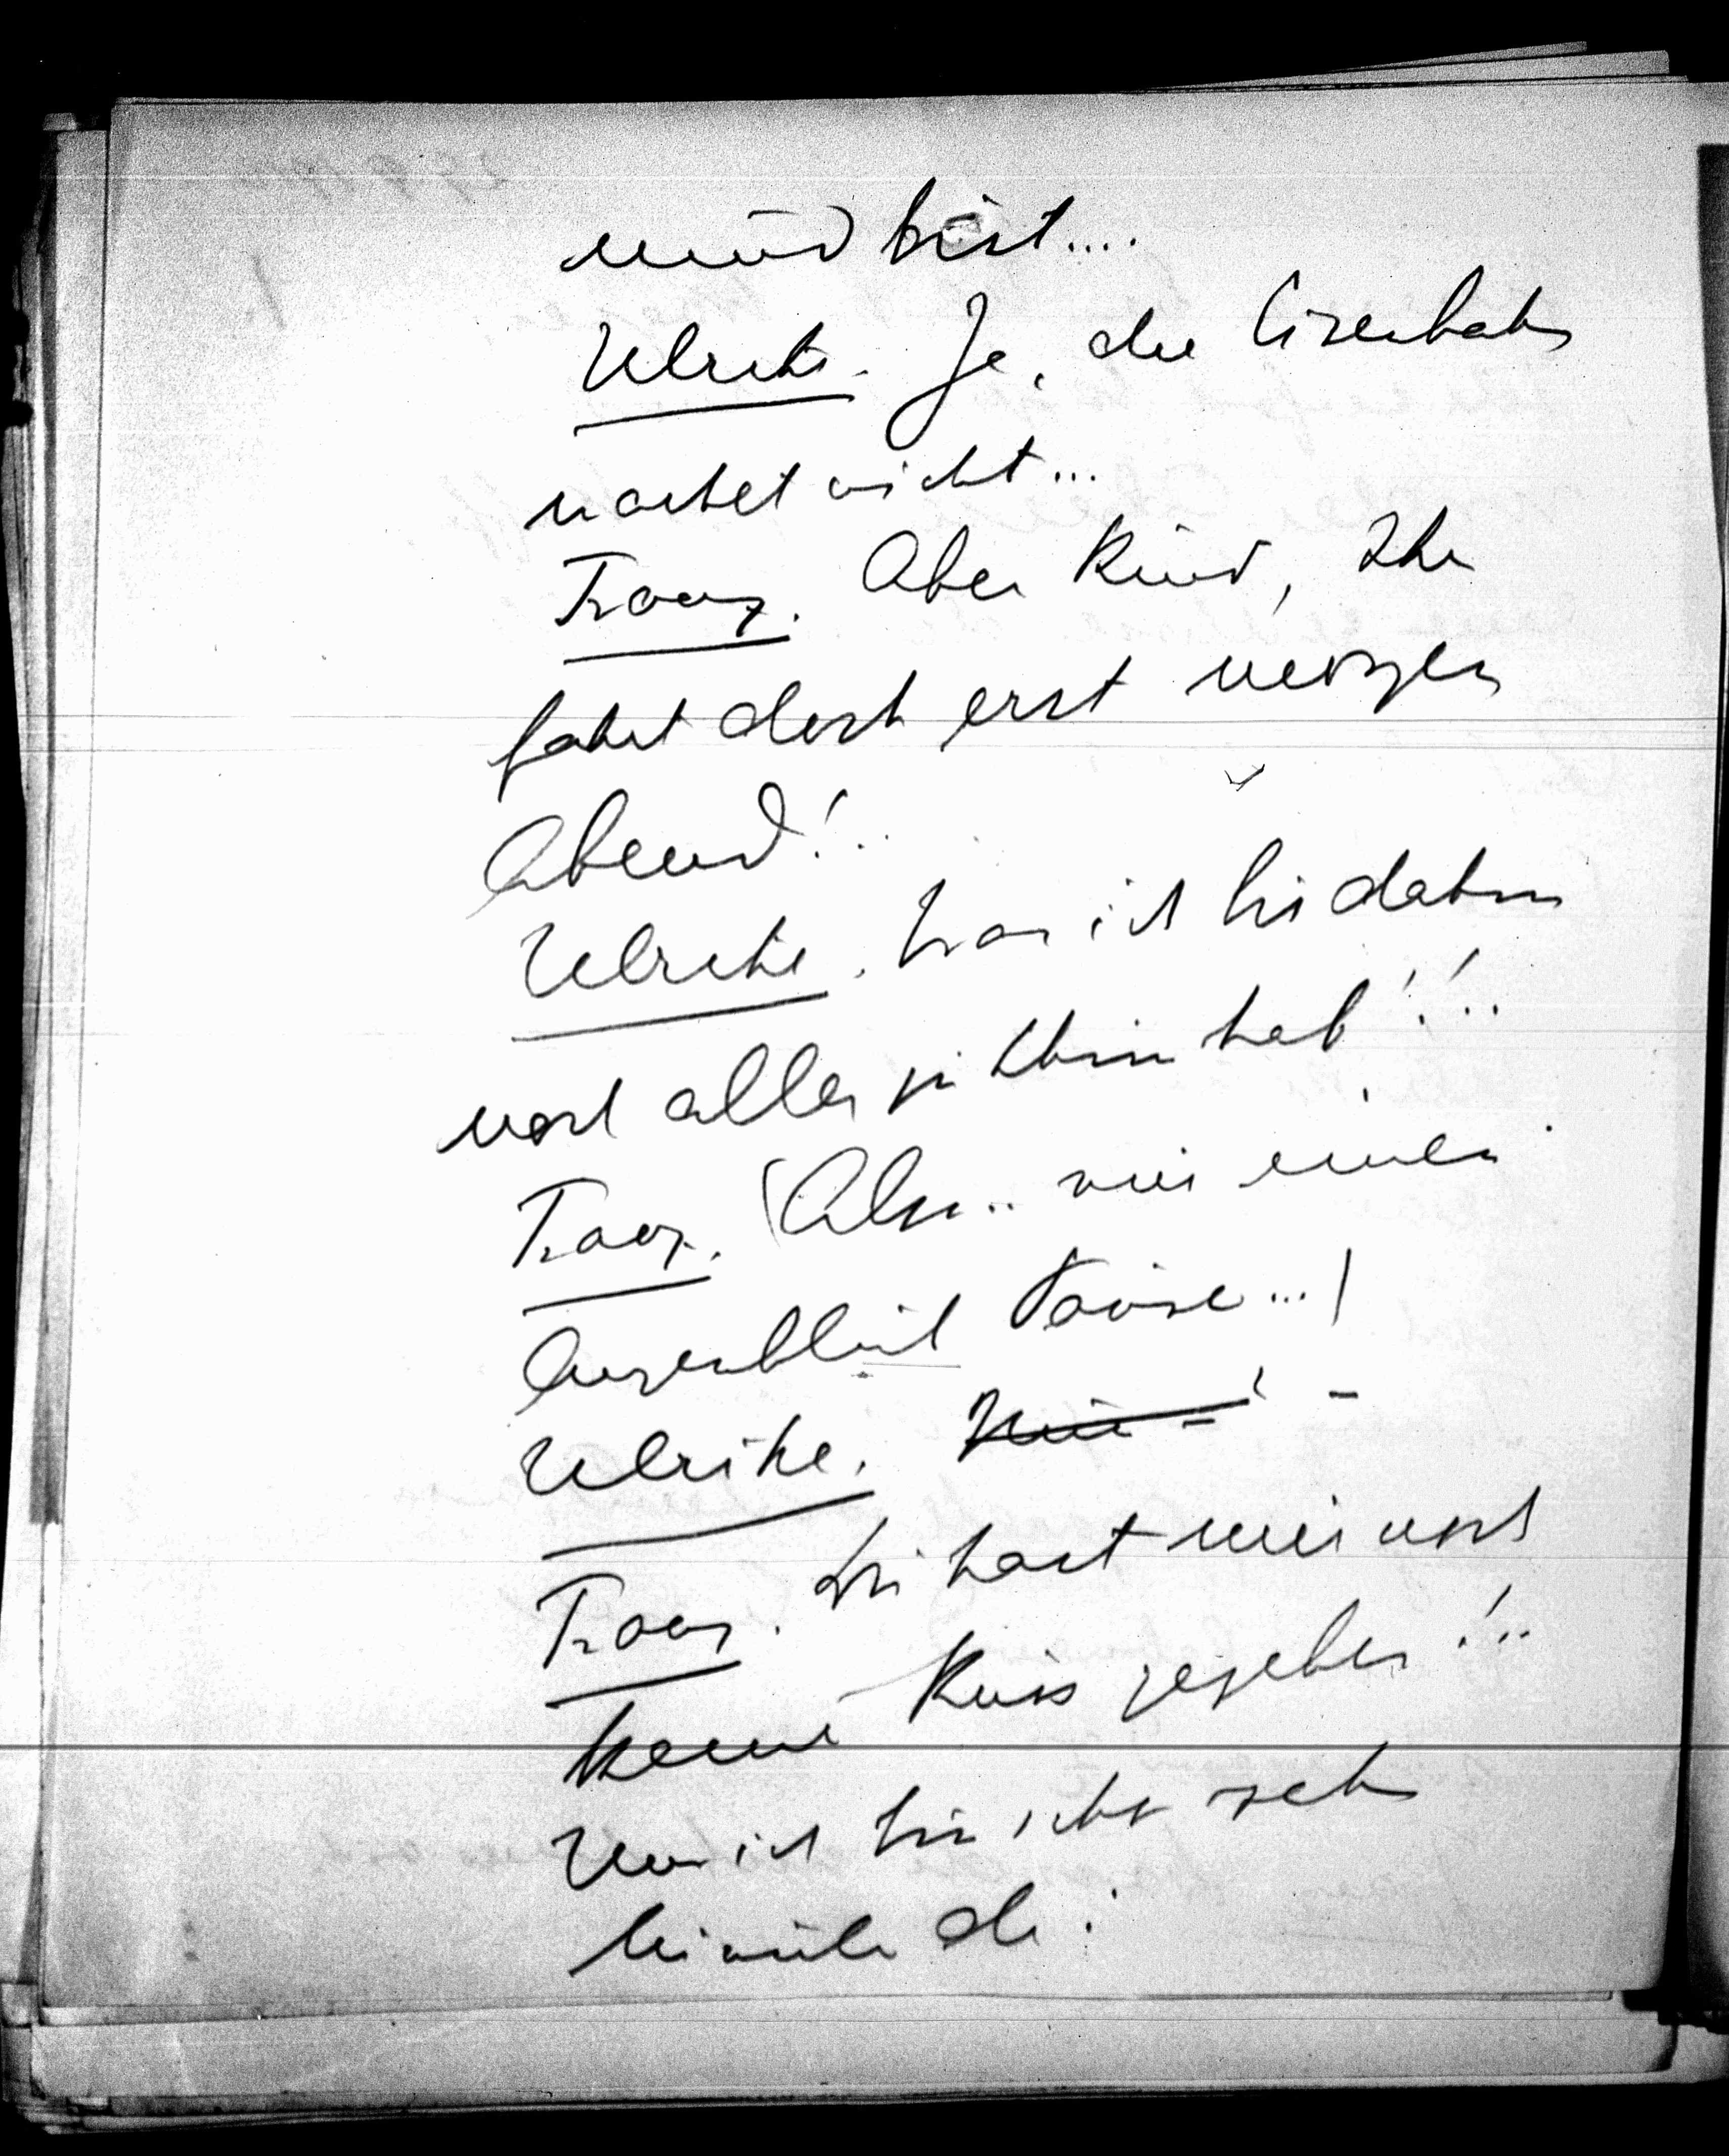 müd bist....
Ulrike. Ja, die Eisenbahn
wartet nicht...
Franz. Aber Kind, Ihr
fahrt doch erst morgen
Abend!..
Ulrike. Was ich bis dahin
noch alles zu thun hab!!..
Franz. (Also.. nur einen
Augenblick Pause...!
Ulrike. –
Franz. Du hast mir noch
keinen Kuss gegeben!..
Und ich bin schon sehr
bei müde